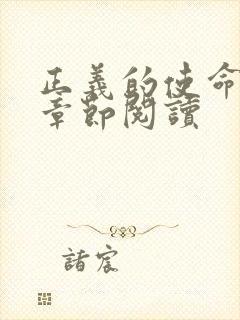 正義的使命
章節閱讀
諸宸